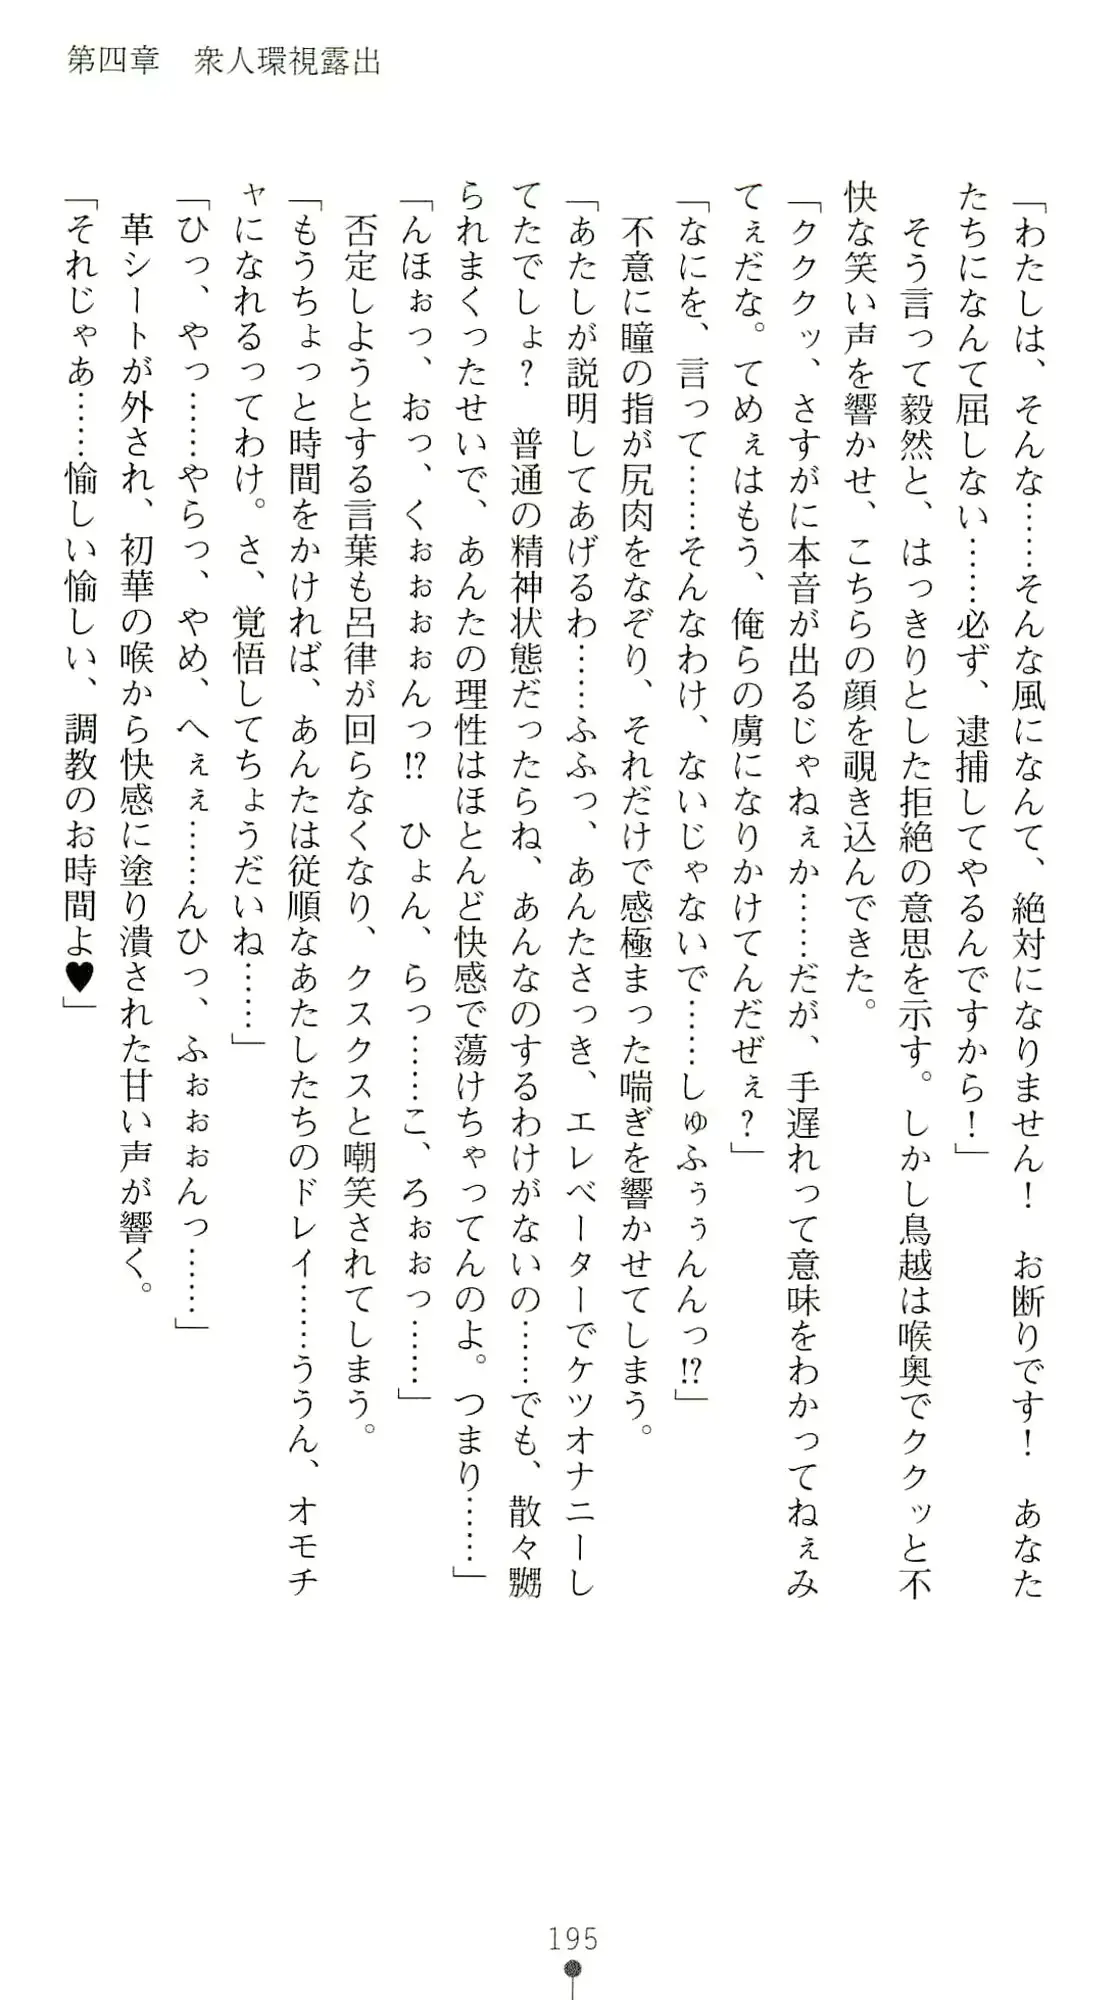 第四章　衆人環視露出
「わたしは、そんな……そんな風になんて、絶対になりません！　お断りです！　あなた
たちになんて屈しない……必ず、逮捕してやるんですから！」
　そう言って毅然と、はっきりとした拒絶の意思を示す。しかし鳥越は喉奥でククッと不
快な笑い声を響かせ、こちらの顔を覗き込んできた。
「クククッ、さすがに本音が出るじゃねぇか……だが、手遅れって意味をわかってねぇみ
てぇだな。てめぇはもう、俺らの虜になりかけてんだぜぇ？」
「なにを、言って……そんなわけ、ないじゃないで……しゅふぅぅんんっ!?」
　不意に瞳の指が尻肉をなぞり、それだけで感極まった喘ぎを響かせてしまう。
「あたしが説明してあげるわ……ふふっ、あんたさっき、エレベーターでケツオナニーし
てたでしょ？　普通の精神状態だったらね、あんなのするわけがないの……でも、散々嬲
られまくったせいで、あんたの理性はほとんど快感で蕩けちゃってんのよ。つまり……」
「んほぉっ、おっ、くぉぉぉぉんっ!?　ひょん、らっ……こ、ろぉぉっ……」
　否定しようとする言葉も呂律が回らなくなり、クスクスと嘲笑されてしまう。
「もうちょっと時間をかければ、あんたは従順なあたしたちのドレイ……ううん、オモチ
ャになれるってわけ。さ、覚悟してちょうだいね……」
「ひっ、やっ……やらっ、やめ、へぇぇ……んひっ、ふぉぉぉんっ……」
　革シートが外され、初華の喉から快感に塗り潰された甘い声が響く。
「それじゃあ……愉しい愉しい、調教のお時間よ♥」
195